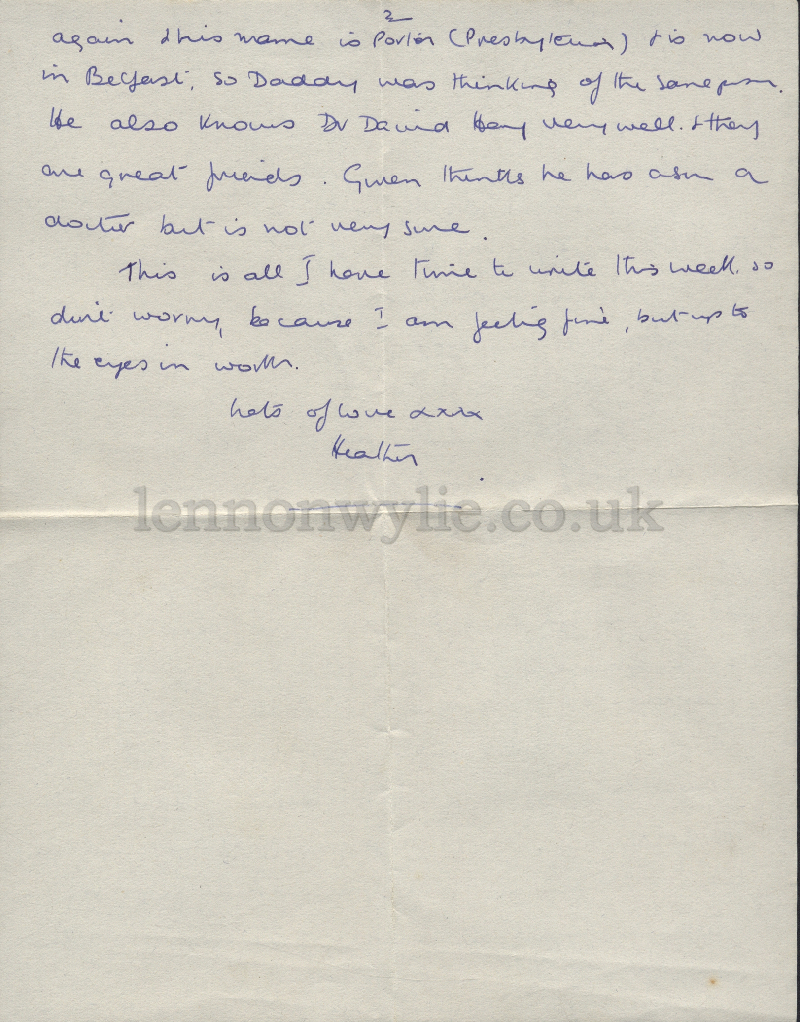 2
again & his name is Porter (Presbyterian) & is now
in Belfast, so Daddy was thinking of the same person.
He also knows Dr David Hay very well. & they
are great friends. Gwen thinks he has a son a
doctor but is not very sure.
This is all I have time to write this week. so
don't worry, because I am feeling fine, but up to
the eyes in work.
Lots of love xxxx
Heather
lennonwylie.co.uk